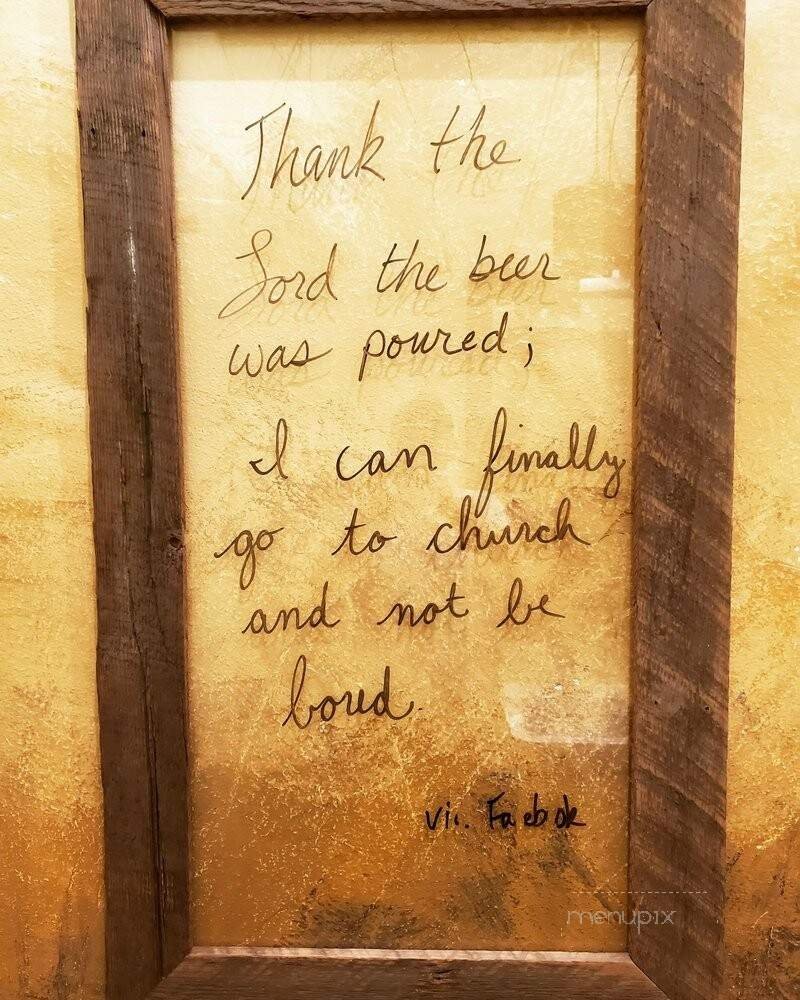 Thank the
Lord the beer
was poured;
I can finally
go to church
and not be
bored.
via Facebok
menupix